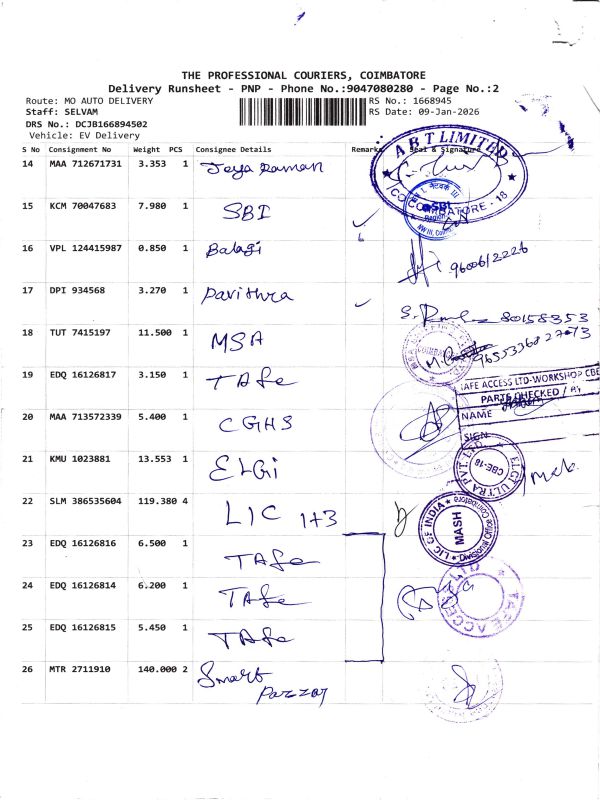 THE PROFESSIONAL COURIERS, COIMBATORE
Delivery Runsheet - PNP - Phone No.:9047080280 - Page No.:2
Route: MO AUTO DELIVERY
Staff: SELVAM
DRS No.: DCJB166894502
Vehicle: EV Delivery
RS No.: 1668945
RS Date: 09-Jan-2026
S No Consignment No Weight PCS Consignee Details Remark Seal & Signature
14 MAA 712671731 3.353 1 Jeya Raman
ABT LIMITED
COIMBATORE - 18
15 KCM 70047683 7.980 1 SBI
SBI
16 VPL 124415987 0.850 1 Balagi 9600612226
17 DPI 934568 3.270 1 Pavithra
18 TUT 7415197 11.500 1 MSA
19 EDQ 16126817 3.150 1 TAfe
TAFE ACCESS LTD-WORKSHOP CBE
PARTS CHECKED /
NAME
SIGN
20 MAA 713572339 5.400 1 CGHS
21 KMU 1023881 13.553 1 ELGi
ELGI ULTRA PVT. LTD.
CBE-18
22 SLM 386535604 119.380 4 LIC 1+3
LIC OF INDIA
MASH
Divisional Office
Coimbatore
23 EDQ 16126816 6.500 1 TAfe
24 EDQ 16126814 6.200 1 TAfe
TAFE ACCESS LTD
25 EDQ 16126815 5.450 1 TAfe
26 MTR 2711910 140.000 2 Smart
Parzzor